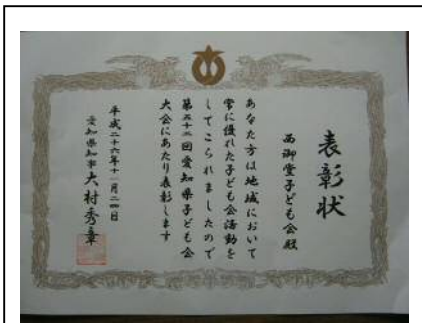 表彰状
西御堂子ども会殿
あなた方は地域において
常に優れた子ども会活動を
してこられましたので
第五十二回愛知県子ども会
大会にあたり表彰します
平成二十六年十一月二四日
愛知県知事 大村秀章